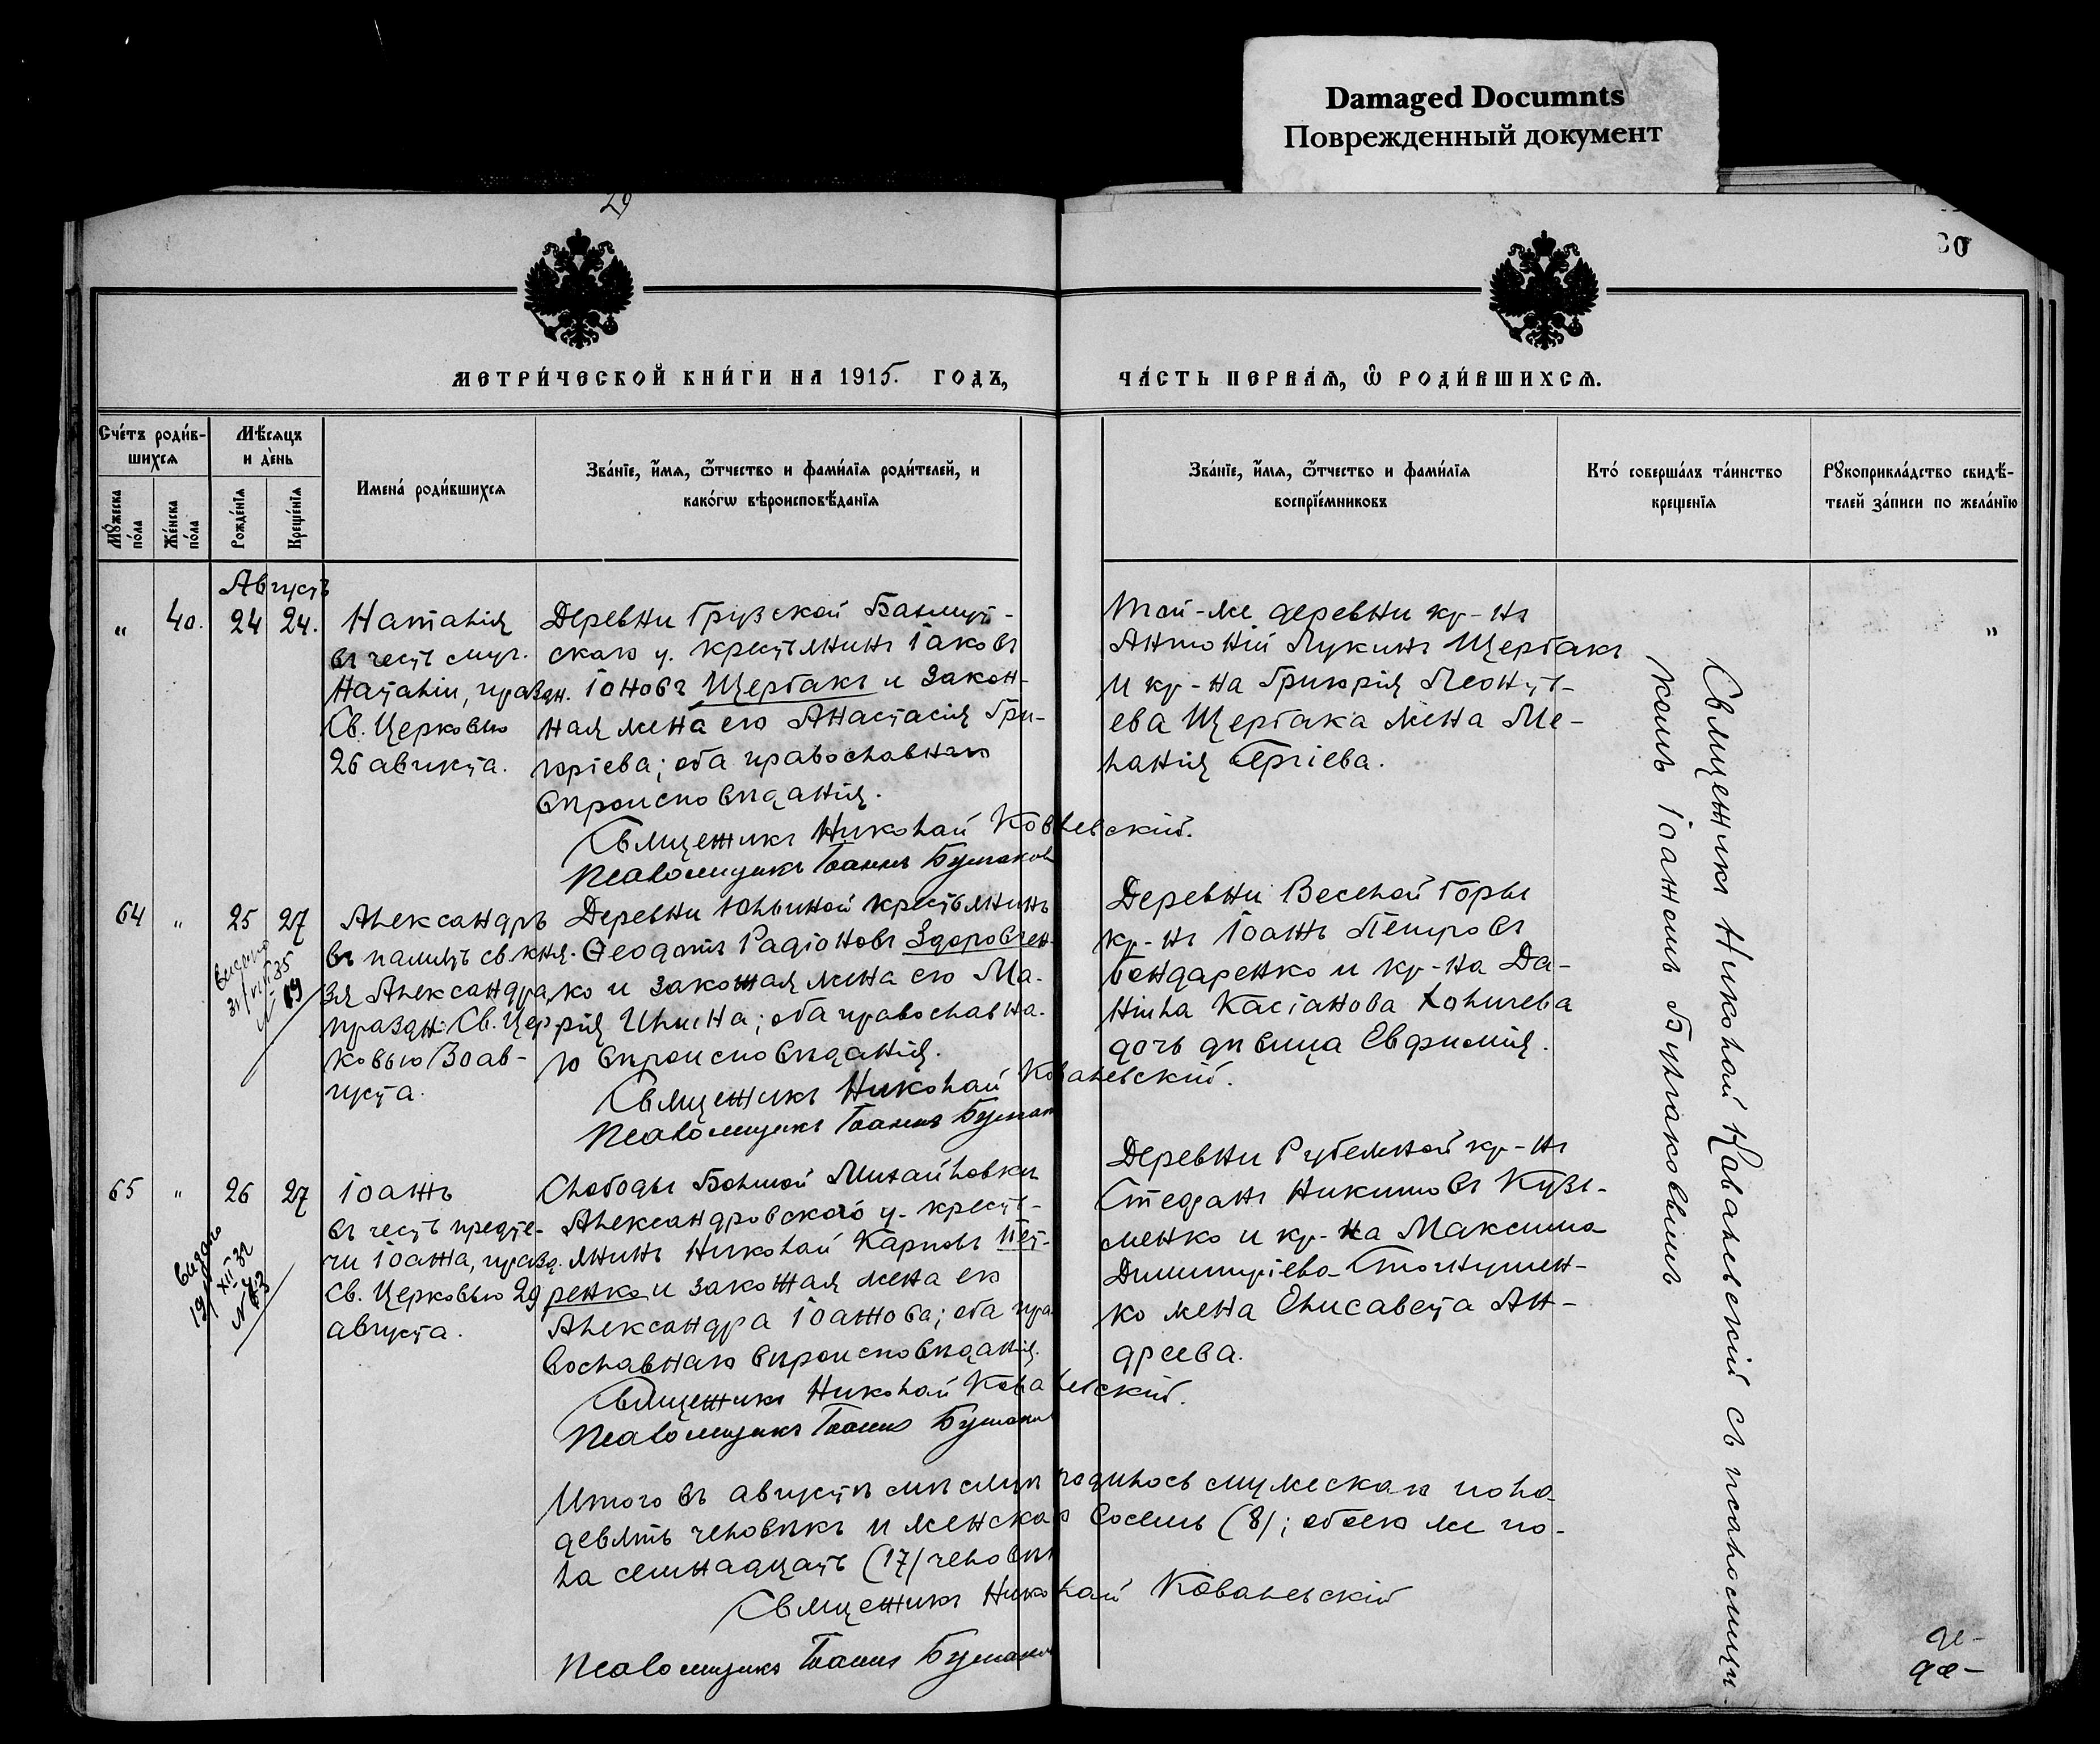 Damaged Documnts
Поврежденный документ
29
МЕТРИ́ЧЕСКОЙ КНИ́ГИ НА 1915. ГОДЪ,
ЧА́СТЬ ПЕРВА́Ѧ, Ѿ РОДИ́ВШИХСѦ.
Сче́тъ роди́в-
шихсѧ
Мѣ́сѧцъ
и де́нь
Мꙋ́жеска по́ла
Же́нска по́ла
Рожде́нїѧ
Креще́нїѧ
Имена́ роди́вшихсѧ
Зва́нїе, и҆́мѧ, ѻ҆́тчество и фами́лїѧ роди́телей, и
како́гѡ вѣроисповѣ́данїѧ
Зва́нїе, и҆́мѧ, ѻ҆́тчество и фами́лїѧ
воспрїе́мниковъ
Кто́ соверша́лъ та́инство
креще́нїѧ
Рꙋкоприкла́дство свидѣ́-
телей за́писи по жела́нїю
Августъ
" 40. 24 24.
Наталія
въ честь муч.
Наталіи, празд.
Св. Церковью
26 августа.
Деревни Грузской Бахмут-
скаго у. крестьянинъ Іаковъ
Іоновъ Щербакъ и закон-
ная жена его Анастасія Гри-
горіева; оба православнаго
вѣроисповѣданія.
Священникъ Николай Ковалевскій.
Псаломщикъ Іоаннъ Булгаковъ
Той-же деревни кр-нъ
Антоній Лукинъ Щербакъ
и кр-на Григорія Леонть-
ева Щербака жена Ме-
ланія Сергіева.
"
64 " 25 27
Александръ
въ память св. кня-
зя Александра,
праздн. Св. Цер-
ковью 30 ав-
густа.
выдано
19
Деревни Юльиной крестьянинъ
Ѳеодотъ Радіоновъ Здоровчен-
ко и законная жена его Ма-
рія Ильина; оба православна-
го вѣроисповѣданія.
Священникъ Николай Ковалевскій.
Псаломщикъ Іоаннъ Булгаков
Деревни Веселой Горы
кр-нъ Іоаннъ Петровъ
Бондаренко и кр-на Да-
ніила Касіанова
дочь дѣвица Евфимія.
65 " 26 27
Іоаннъ
въ честь предте-
чи Іоанна, празд.
Св. Церковью 29
августа.
выдано
19/XII 32
N 43
Слободы Большой Михайловки
Александровскаго у. кресть-
янинъ Николай Карповъ Пет-
ренко и законная жена его
Александра Іоаннова; оба пра-
вославнаго вѣроисповѣданія.
Священникъ Николай Ковалевскій.
Псаломщикъ Іоаннъ Булгаковъ
Деревни Рубежной кр-нъ
Стефанъ Никитовъ Кузь-
менко и кр-на Максима
Димитріева
ко жена Елисавета Ан-
дреева.
Священникъ Николай Ковалевскій съ псаломщи-
комъ Іоанномъ Булгаковымъ
Итого въ августѣ мѣсяцѣ родилось мужескаго пола
девять человѣкъ и женскаго восемь (8); обоего же по-
ла семнадцать (17) человѣкъ
Священникъ Николай Ковалевскій
Псаломщикъ Іоаннъ Булгаковъ